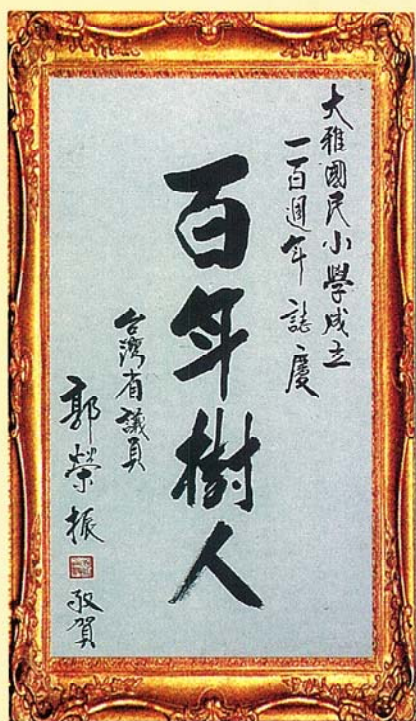 大雅國民小學成立
一百週年誌慶
百年樹人
台灣省議員
郭榮振 敬賀